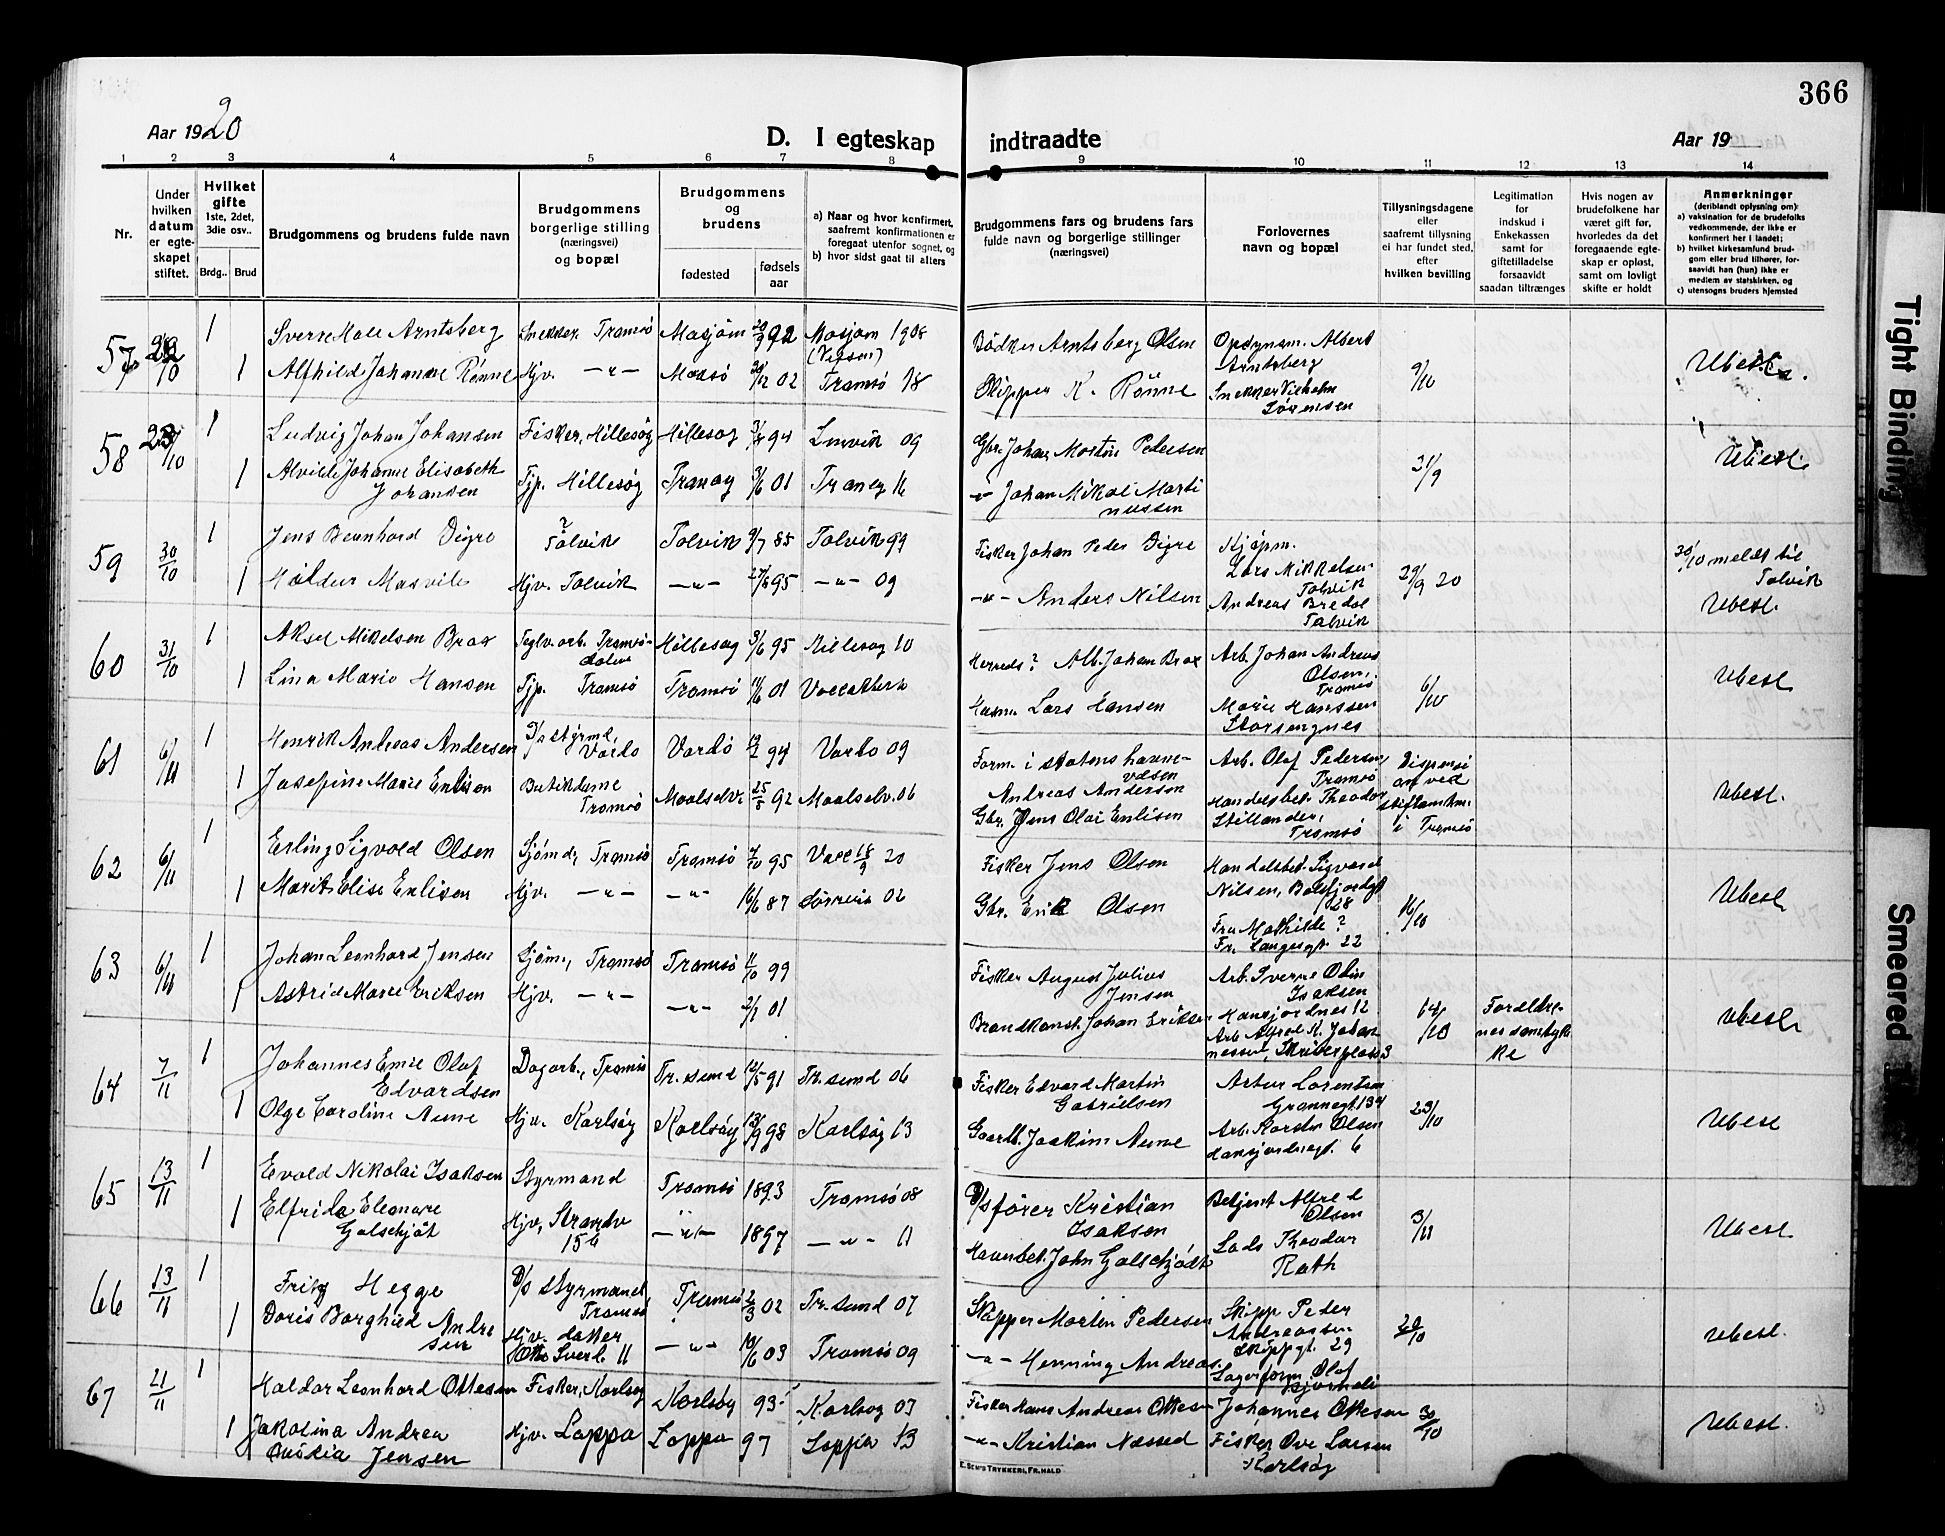 366
Aar 1920
D. I egteskap
indtraadte
Aar 19
1 2 3 4 5 6 7 8 9 10 11 12 13 14
Nr.
Under hvilken datum er egteskapet stiftet.
Hvilket gifte 1ste, 2det, 3die osv..
Brdg.. Brud
Brudgommens og brudens fulde navn
Brudgommens borgerlige stilling (næringsvei) og bopæl
Brudgommens og brudens
fødested
fødsels aar
a) Naar og hvor konfirmert, saafremt konfirmationen er foregaat utenfor sognet, og
b) hvor sidst gaat til alters
Brudgommens fars og brudens fars fulde navn og borgerlige stillinger (næringsvei)
Forlovernes navn og bopæl
Tillysningsdagene eller saafremt tillysning ei har fundet sted, efter hvilken bevilling
Legitimation for indskud i Enkekassen samt for giftetilladelse forsaavidt saadan tiltrænges
Hvis nogen av brudefolkene har været gift før, hvorledes da det foregaaende egteskap er opløst, samt om lovligt skifte er holdt
Anmerkninger (deriblandt oplysning om):
a) vaksination for de brudefolks vedkommende, der ikke er konfirmert her i landet;
b) hvilket kirkesamfund brudgom eller brud tilhører, forsaavidt han (hun) ikke er medlem av statskirken, og
c) utensogns bruders hjemsted
57 22/10 1 Sverre Moll Arntsberg Snekker, Tromsø Mosjøen 92 Mosjøen 1908 Bødker Arntsberg Olsen Albert Arntsberg 9/10 Ubesl.
(Vefsen)
1 Alfhild Johanne Rønne Hjv. —"— 02 Tromsø 18 Skipper K. Rønne Snekker Vilhelm Sørensen
58 23/10 1 Ludvig Johan Johansen Fisker, Hillesøy Hillesøy 94 Lenvik 09 Gbr. Johan Martin Pedersen 21/9 Ubesl.
1 Alvilde Johanne Elisabeth Johansen Tjp. Hillesøy Tranøy 01 Tranøy 16 —"— Johan Mikal Martinussen
59 30/10 1 Jens Bernhard Digre ? Talvik Talvik 9/7 85 Talvik 99 Fisker Johan Peder Digre Kjøpm. Lars Mikkelsen Talvik 29/9 20 30/10 meldt til Talvik
1 Mosvik Hjv. Talvik —"— 95 —"— 09 —"— Anders Nilsen Andreas Bredal Talvik Ubesl.
60 31/10 1 Aksel Mikelsen Brox Tromsdalen Hillesøy 3/6 95 Hillesøy 10 ? Johan Brox Arb. Johan Andreas Olsen, Tromsø 6/10 Ubesl.
1 Lina Marie Hansen Tjp. Tromsø Tromsø 01 Husm. Lars Hansen Marie Hanssen Storsengnes
61 6/11 1 Henrik Andreas Andersen Vardø Vardø 94 Vardø 09 Form. i statens havnevæsen Andreas Andersen Arb. Olaf Pedersen, Tromsø Dispensation ved stiftamtm. i Tromsø Ubesl.
1 Josefine Marie Enlisen Butikdame Tromsø Maalselv. 25/5 92 Maalselv. 06 Gbr. Jens Olai Enlisen Handelsbet. Theodor Tromsø
62 6/11 1 Erling Sigvald Olsen Sjømd, Tromsø Tromsø 7/10 95 20 Fisker Jens Olsen Handelsbet. Sigvard Nilsen, 28 16/10 Ubesl.
1 Marit Elise Enlisen Hjv. —"— —"— 16/6 87 02 Gbr. Erik Olsen Fru Mathilde ? Fr. Langesgt. 22
63 6/11 1 Johan Leonhard Jensen Sjøm., Tromsø Tromsø 11/10 99 Fisker August Julius Jensen Arb. Sverre Odin Isaksen 12 14/10 Forældrenes samtykke Ubesl.
1 Astrid Marie Eriksen Hjv. —"— —"— 2/1 01 Brandkonst. Johan Eriksen Arb. Alfred K. Johannessen, Skriverplass 3
64 7/11 1 Johannes Emil Olaf Edvardsen Dagarb., Tromsø Tr.sund 91 Tr.sund 06 Fisker Edvard Martin Gabrielsen Artur Lorentsen Grønnegt. 134 23/10 Ubesl.
1 Olga Caroline Aune Hjv. Karlsøy Karlsøy 13/9 98 Karlsøy 13 Gaardb. Joakim Aune Arb. Karsten Olsen 6
65 13/11 1 Evald Nikolai Isaksen Styrmand Tromsø 1893 Tromsø 08 D/sfører Kristian Isaksen Betjent Alfred Olsen 3/11 Ubesl.
1 Elfrida Eleonore Galschjøt Hjv, Strandv 156 —"— 1897 —"— 11 Havnbet. John Galschjødt Lods Theodor Rath
66 13/11 1 Fritz Hegge D/s styrmand Tromsø Tromsø 2/3 02 Tr.sund 07 Skipper Morten Pedersen Skipp. Peder Andreassen Skippgt. 29 20/10 Ubesl.
1 Doris Borghild Andresen Hjv. datter 11 —"— 10/6 03 Tromsø 09 —"— Henning Andreas. Lagerform. Olaf
67 21/11 1 Haldor Leonhard Ottesen Fisker, Karlsøy Karlsøy 93 Karlsøy 07 Fisker Hans Andreas Ottesen Johannes Ottesen 30/10 Ubesl.
1 Jakolina Andrea Jensen Hjv. Loppa Loppa 97 Loppa 13 —"— Kristian Fisker Ove Larsen Karlsøy
E. SEM'S TRYKKERI, FR.HALD
Tight Binding
Smeared